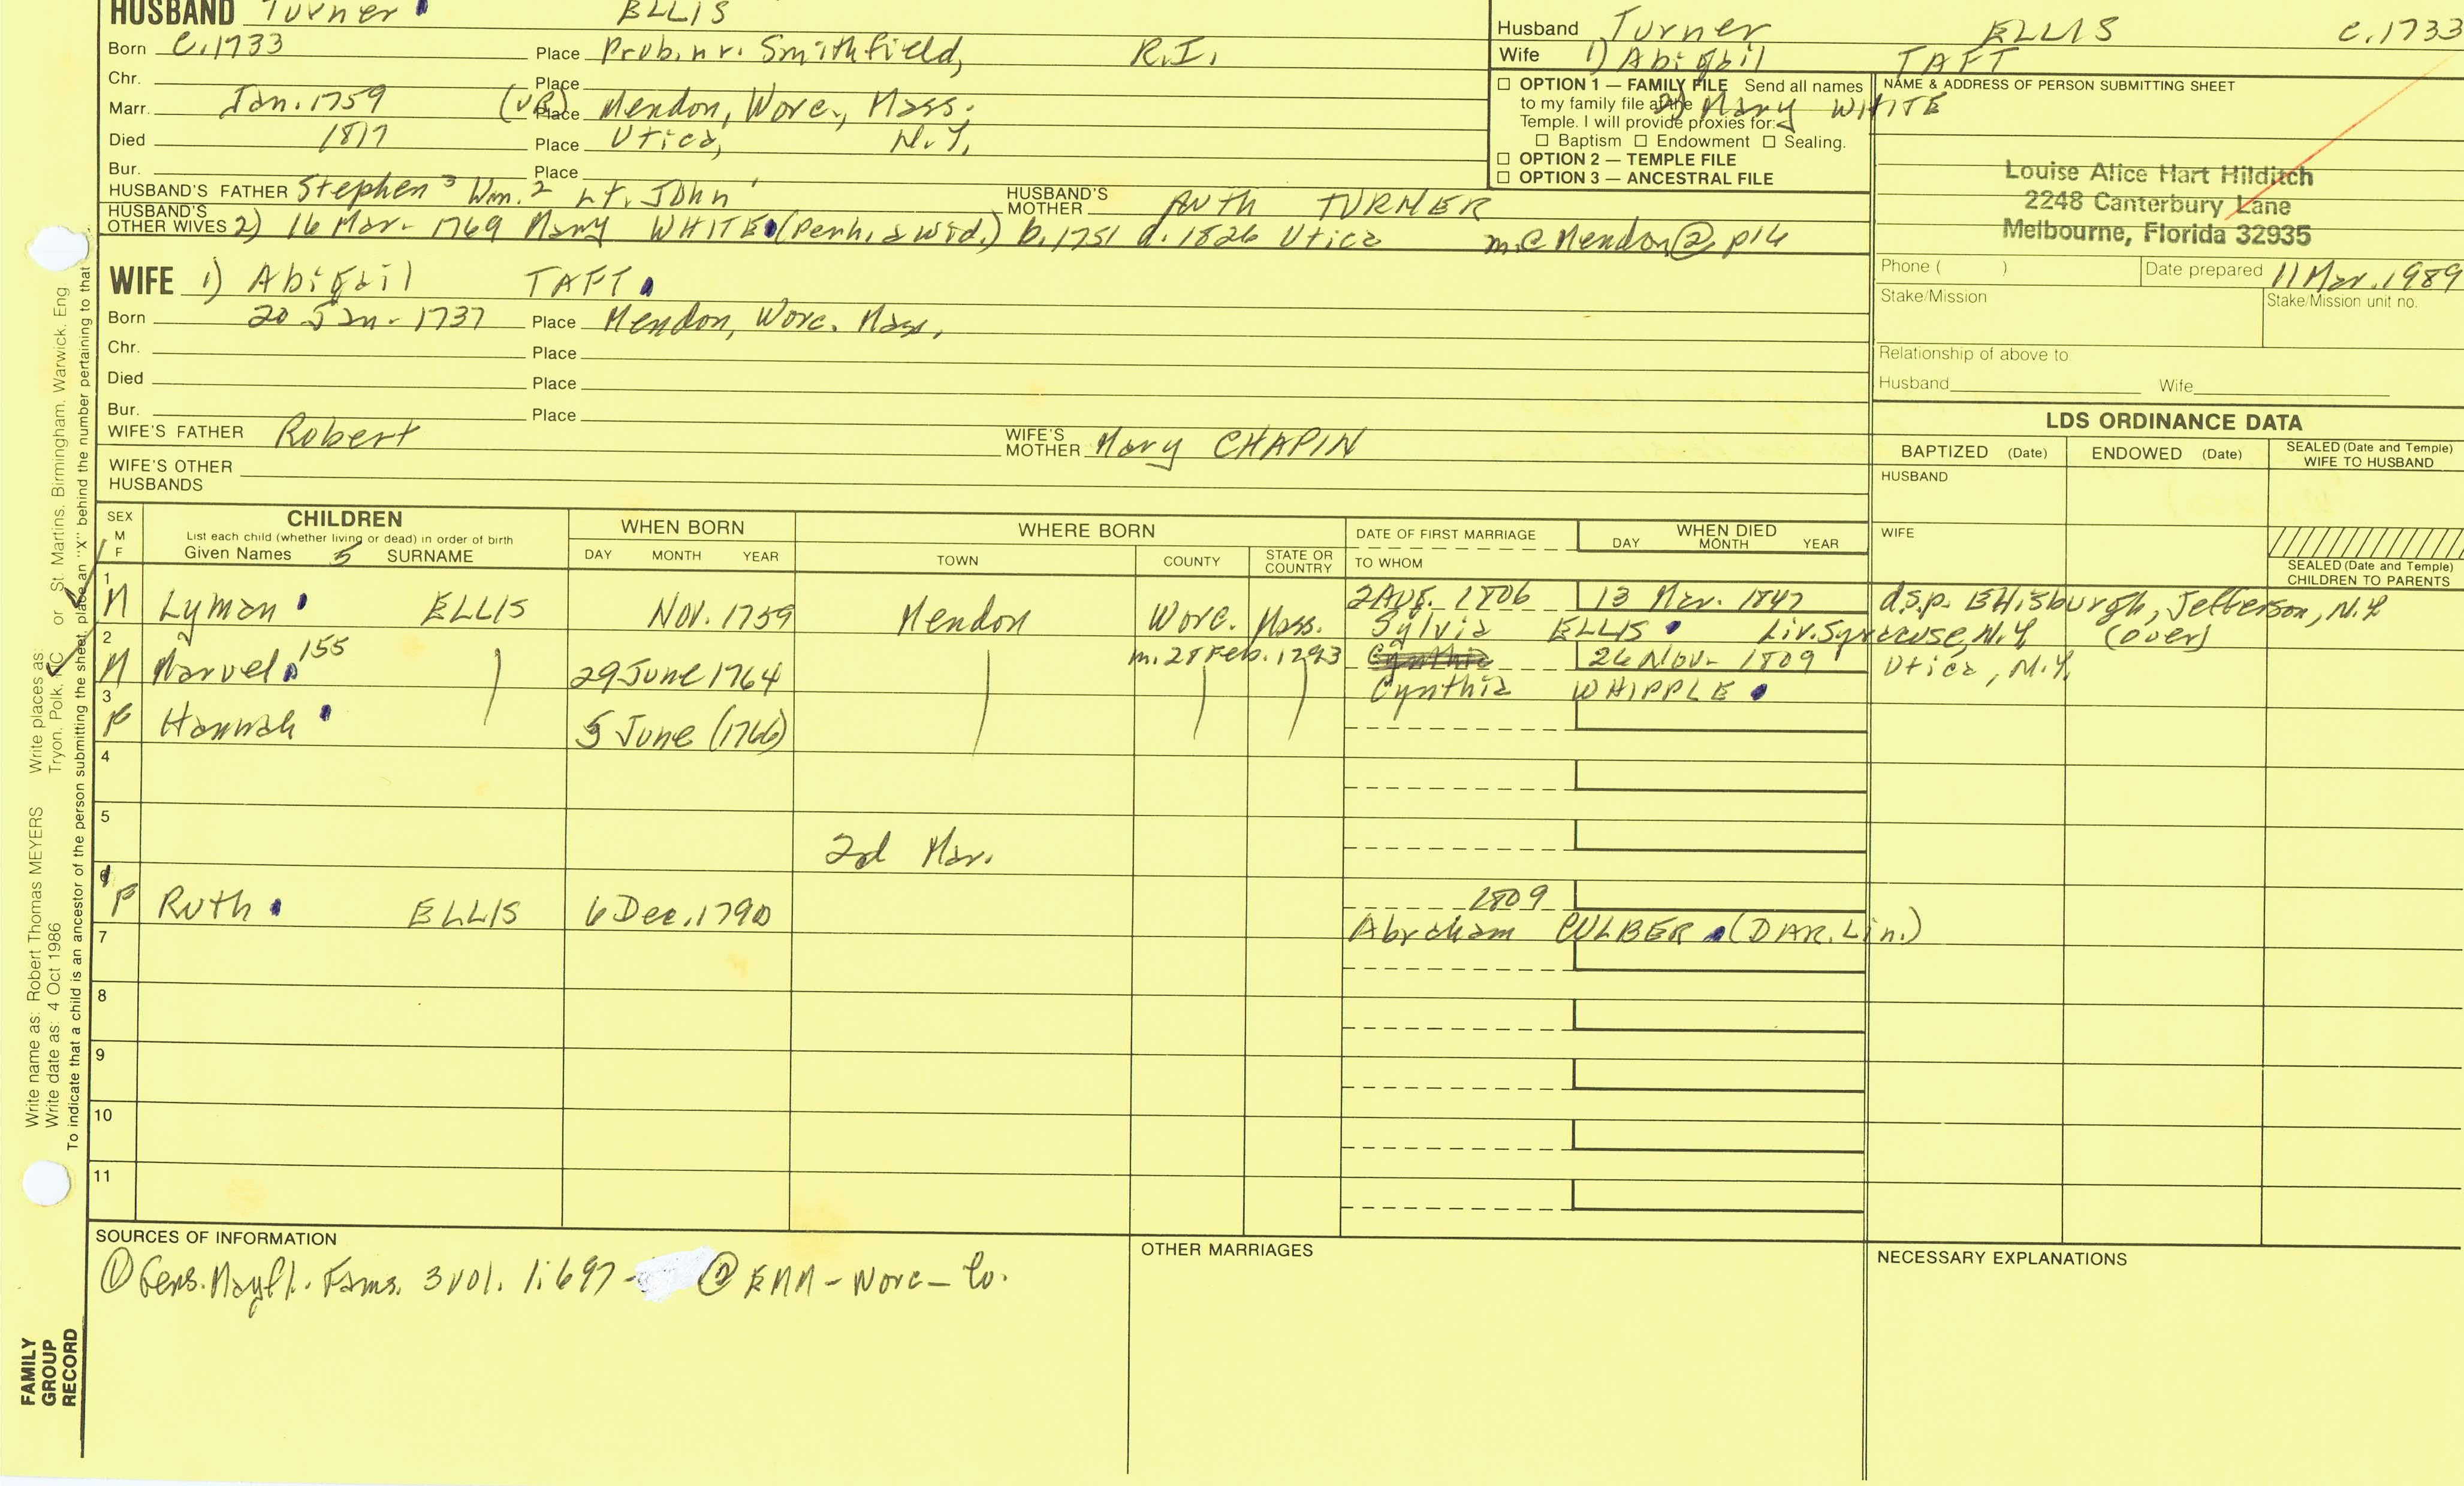 HUSBAND Turner ELLIS
Born C.1733 Place Prob. nr. Smithfield, R.I.
Chr. Place
Marr. Jan. 1759 (VR) Place Mendon, Worc., Mass.
Died 1817 Place Utica, N.Y.
Bur. Place
HUSBAND'S FATHER Stephen 3 Wm. 2 Lt. John 1 HUSBAND'S MOTHER Ruth TURNER
HUSBAND'S OTHER WIVES 2) 16 Mar. 1769 Mary WHITE (Perh. a wid.) b. 1751 d. 1826 Utica m.@ Mendon ② p14
Husband Turner ELLIS c.1733
Wife 1) Abigail TAFT
2) Mary WHITE
☐ OPTION 1 — FAMILY FILE Send all names
to my family file at the
Temple. I will provide proxies for:
☐ Baptism ☐ Endowment ☐ Sealing.
☐ OPTION 2 — TEMPLE FILE
☐ OPTION 3 — ANCESTRAL FILE
NAME & ADDRESS OF PERSON SUBMITTING SHEET
Louise Alice Hart Hilditch
2248 Canterbury Lane
Melbourne, Florida 32935
Phone ( ) Date prepared 11 Mar. 1989
Stake/Mission Stake/Mission unit no.
Relationship of above to
Husband Wife
WIFE 1) Abigail TAFT
Born 20 Jan. 1737 Place Mendon, Worc. Mass.
Chr. Place
Died Place
Bur. Place
WIFE'S FATHER Robert WIFE'S MOTHER Mary CHAPIN
WIFE'S OTHER HUSBANDS
LDS ORDINANCE DATA
BAPTIZED (Date) ENDOWED (Date) SEALED (Date and Temple) WIFE TO HUSBAND
HUSBAND
WIFE
SEALED (Date and Temple) CHILDREN TO PARENTS
SEX M F
CHILDREN
List each child (whether living or dead) in order of birth
Given Names 5 SURNAME
WHEN BORN
DAY MONTH YEAR
WHERE BORN
TOWN COUNTY STATE OR COUNTRY
DATE OF FIRST MARRIAGE
TO WHOM
WHEN DIED
DAY MONTH YEAR
1 M Lyman ELLIS Nov. 1759 Mendon Worc. Mass. 2 Aug. 1806 13 Mar. 1847 d.s.p. Ellisburgh, Jefferson, N.Y.
Sylvia ELLIS Liv. Syracuse, N.Y. (over)
2 M Marvel 155 29 June 1764 m. 28 Feb. 1793 26 Nov. 1809 Utica, N.Y.
Cynthia WHIPPLE
3 F Hannah 5 June (1766)
4
5
2nd Mar.
6 F Ruth ELLIS 6 Dec. 1790 1809
Abraham CULBER (DAR. Lin.)
7
8
9
10
11
SOURCES OF INFORMATION
① Gens. Mayfl. Fams. 3 vol. 1:697- ② EMM - Worc - Co.
OTHER MARRIAGES
NECESSARY EXPLANATIONS
Write name as: Robert Thomas MEYERS Write places as:
Write date as: 4 Oct 1986 Tryon, Polk, NC or St. Martins, Birmingham, Warwick, Eng
To indicate that a child is an ancestor of the person submitting the sheet, place an "X" behind the number pertaining to that
FAMILY
GROUP
RECORD